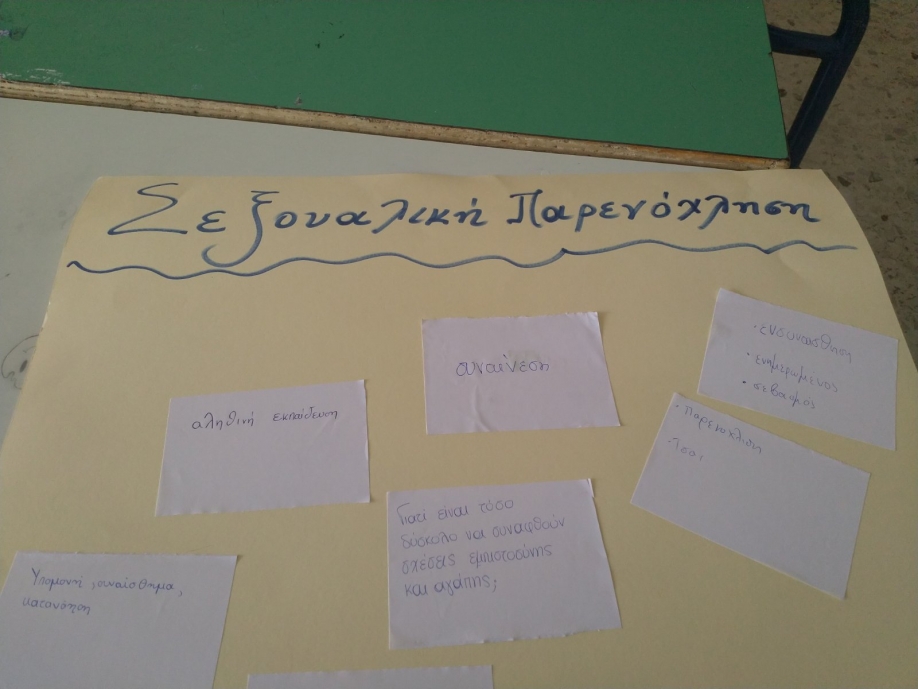 Σεξουαλική Παρενόχληση
συναίνεση
· ενσυναίσθηση
· ενημερωμένος
· σεβασμός
αληθινή εκπαίδευση
· Παρενόχλιση
Γιατί είναι τόσο
δύσκολο να συναφθούν
σχέσεις εμπιστοσύνης
και αγάπης;
Υπομονή, συναίσθημα,
κατανόηση